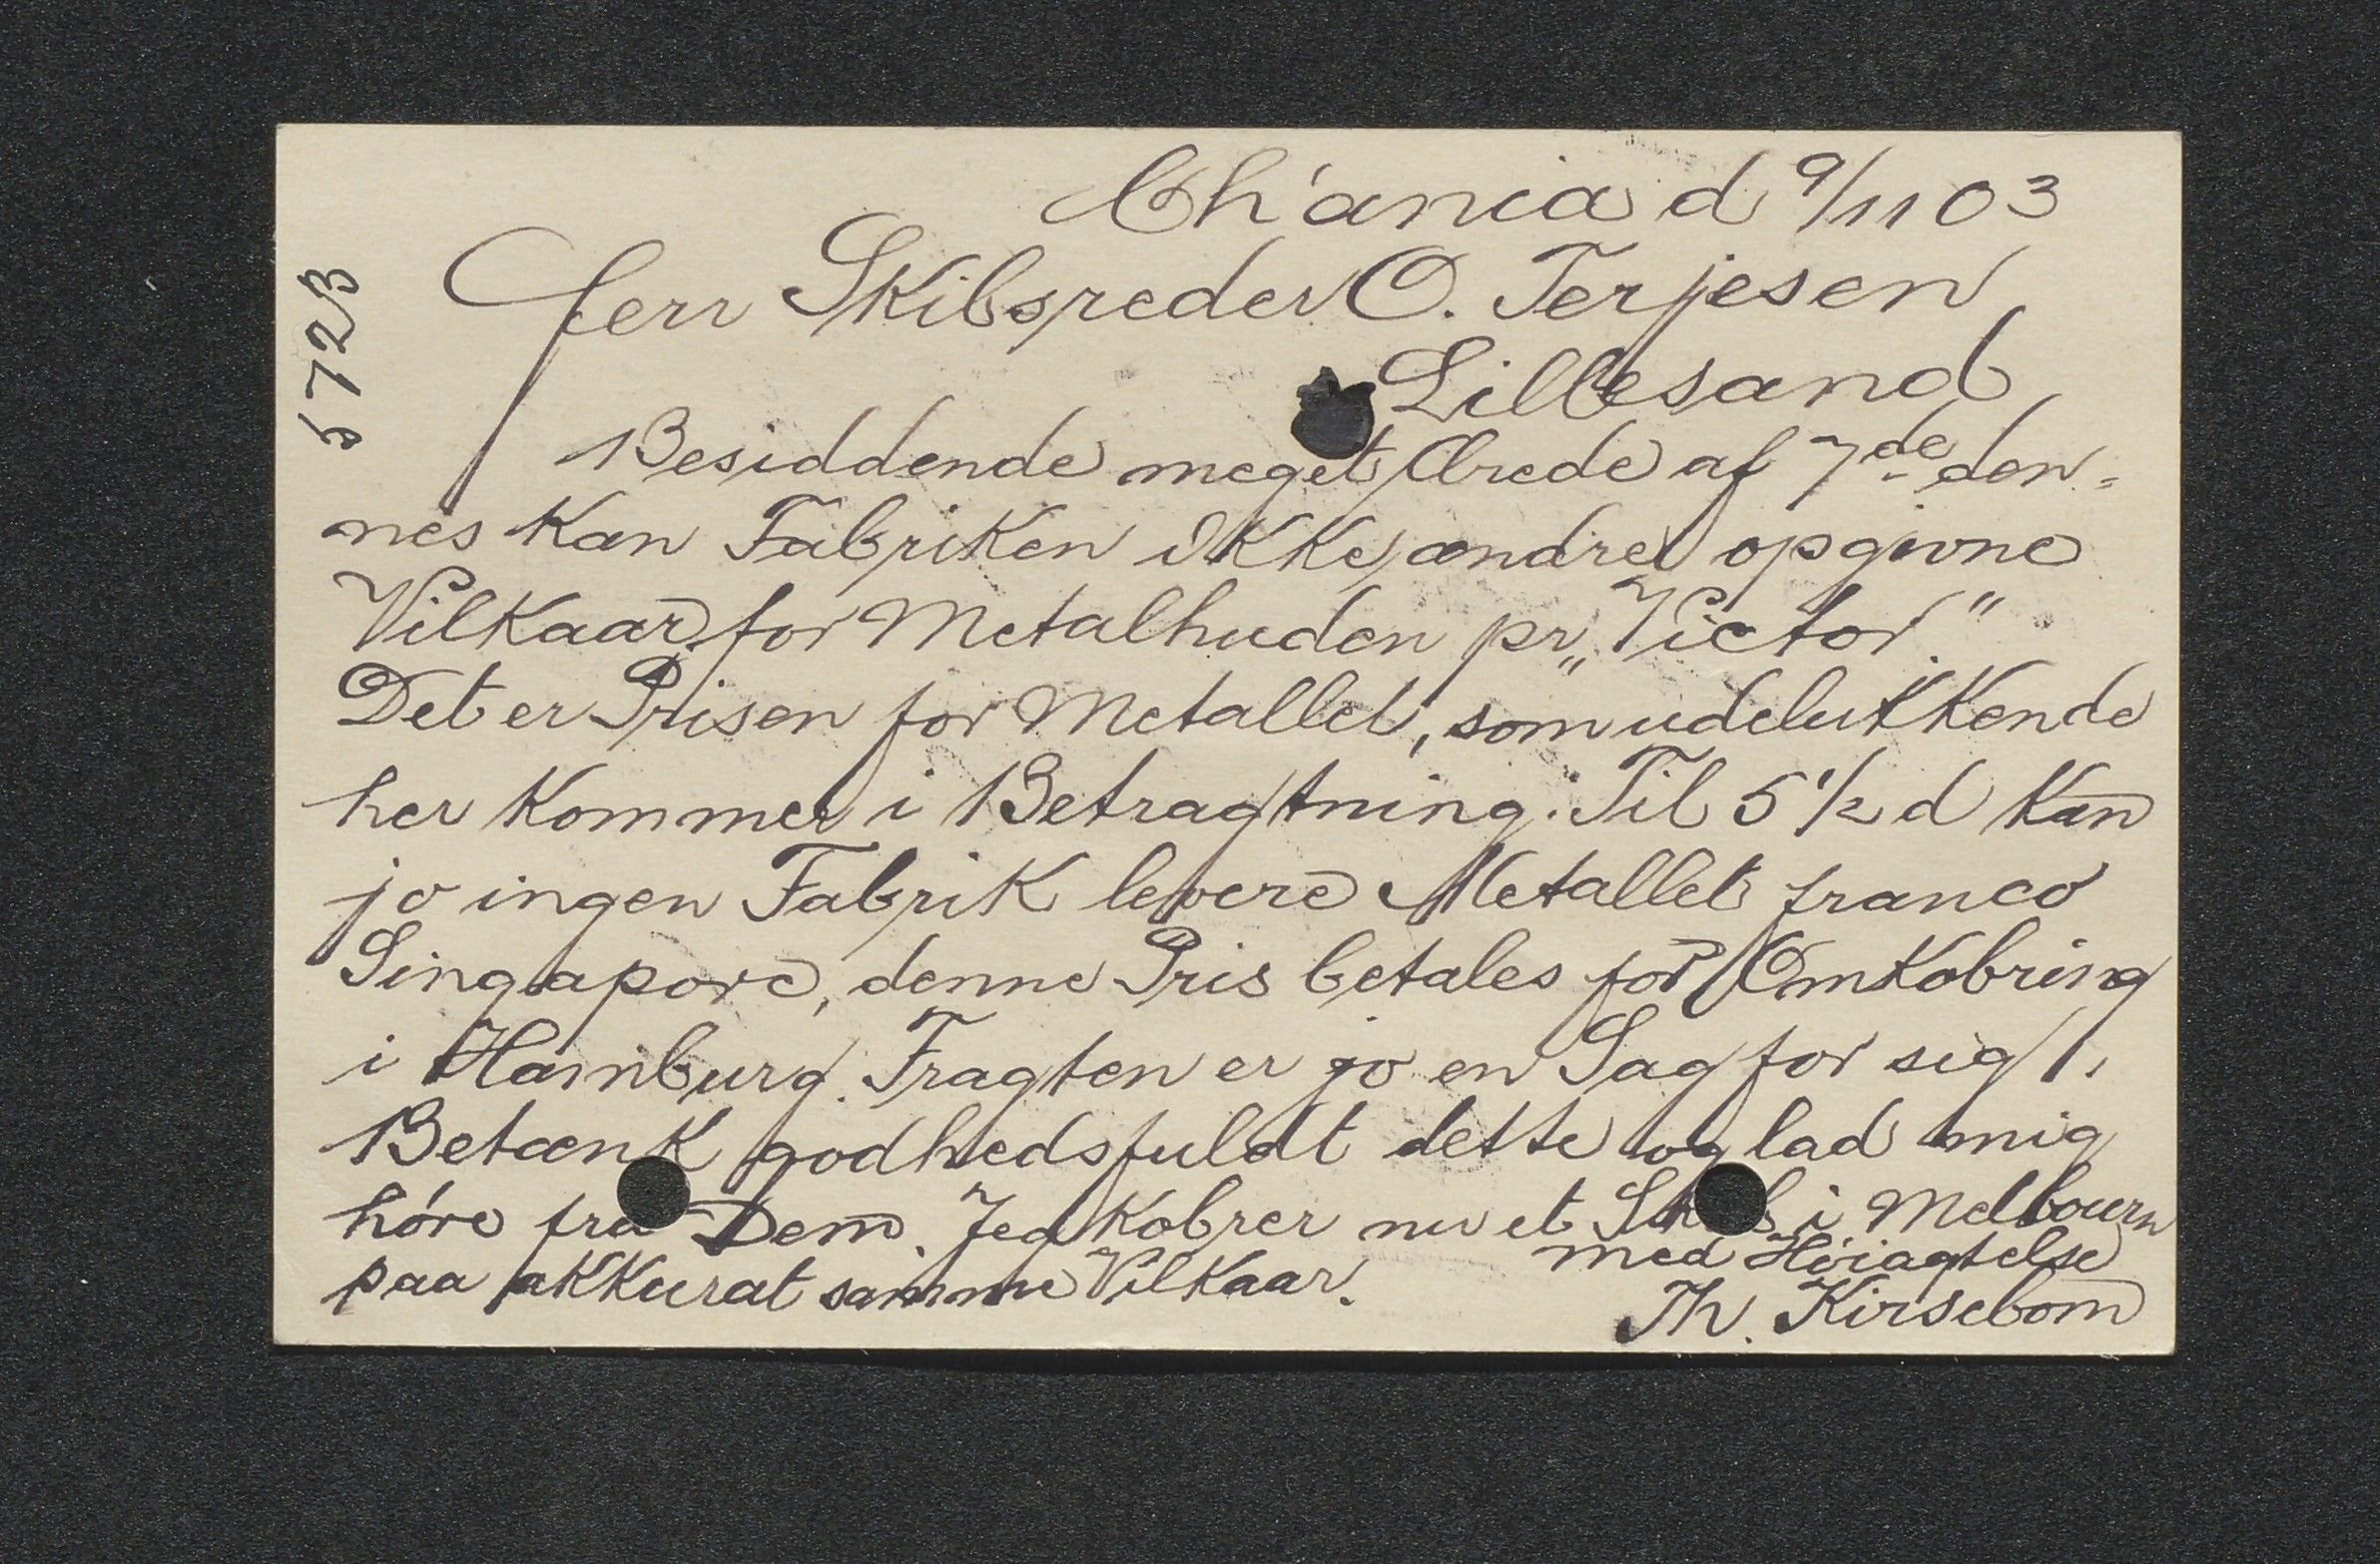 Ch'ania d 9/11 03
Herr Skibsreder O. Terjesen
Lillesand
572B
Besiddende meget Ærede af 7de den-
nes kan Fabriken ikke ændre opgivne
Vilkaar for Metalhuden pr „Victor."
Det er Prisen for Metallet, som udelukkende
her kommer i Betragtning. Til 5 1/2 d kan
jo ingen Fabrik levere Metallet franco
Singapore, denne Pris betales for Omkobring
i Hamburg. Fragten er jo en Sag for sig!.
Betænk godhedsfuldt dette og lad mig
høre fra Dem. Jeg kobrer nu et i Melbourn
paa akkurat samme Vilkaar.
med Høiagtelse
Th. Kirsebom